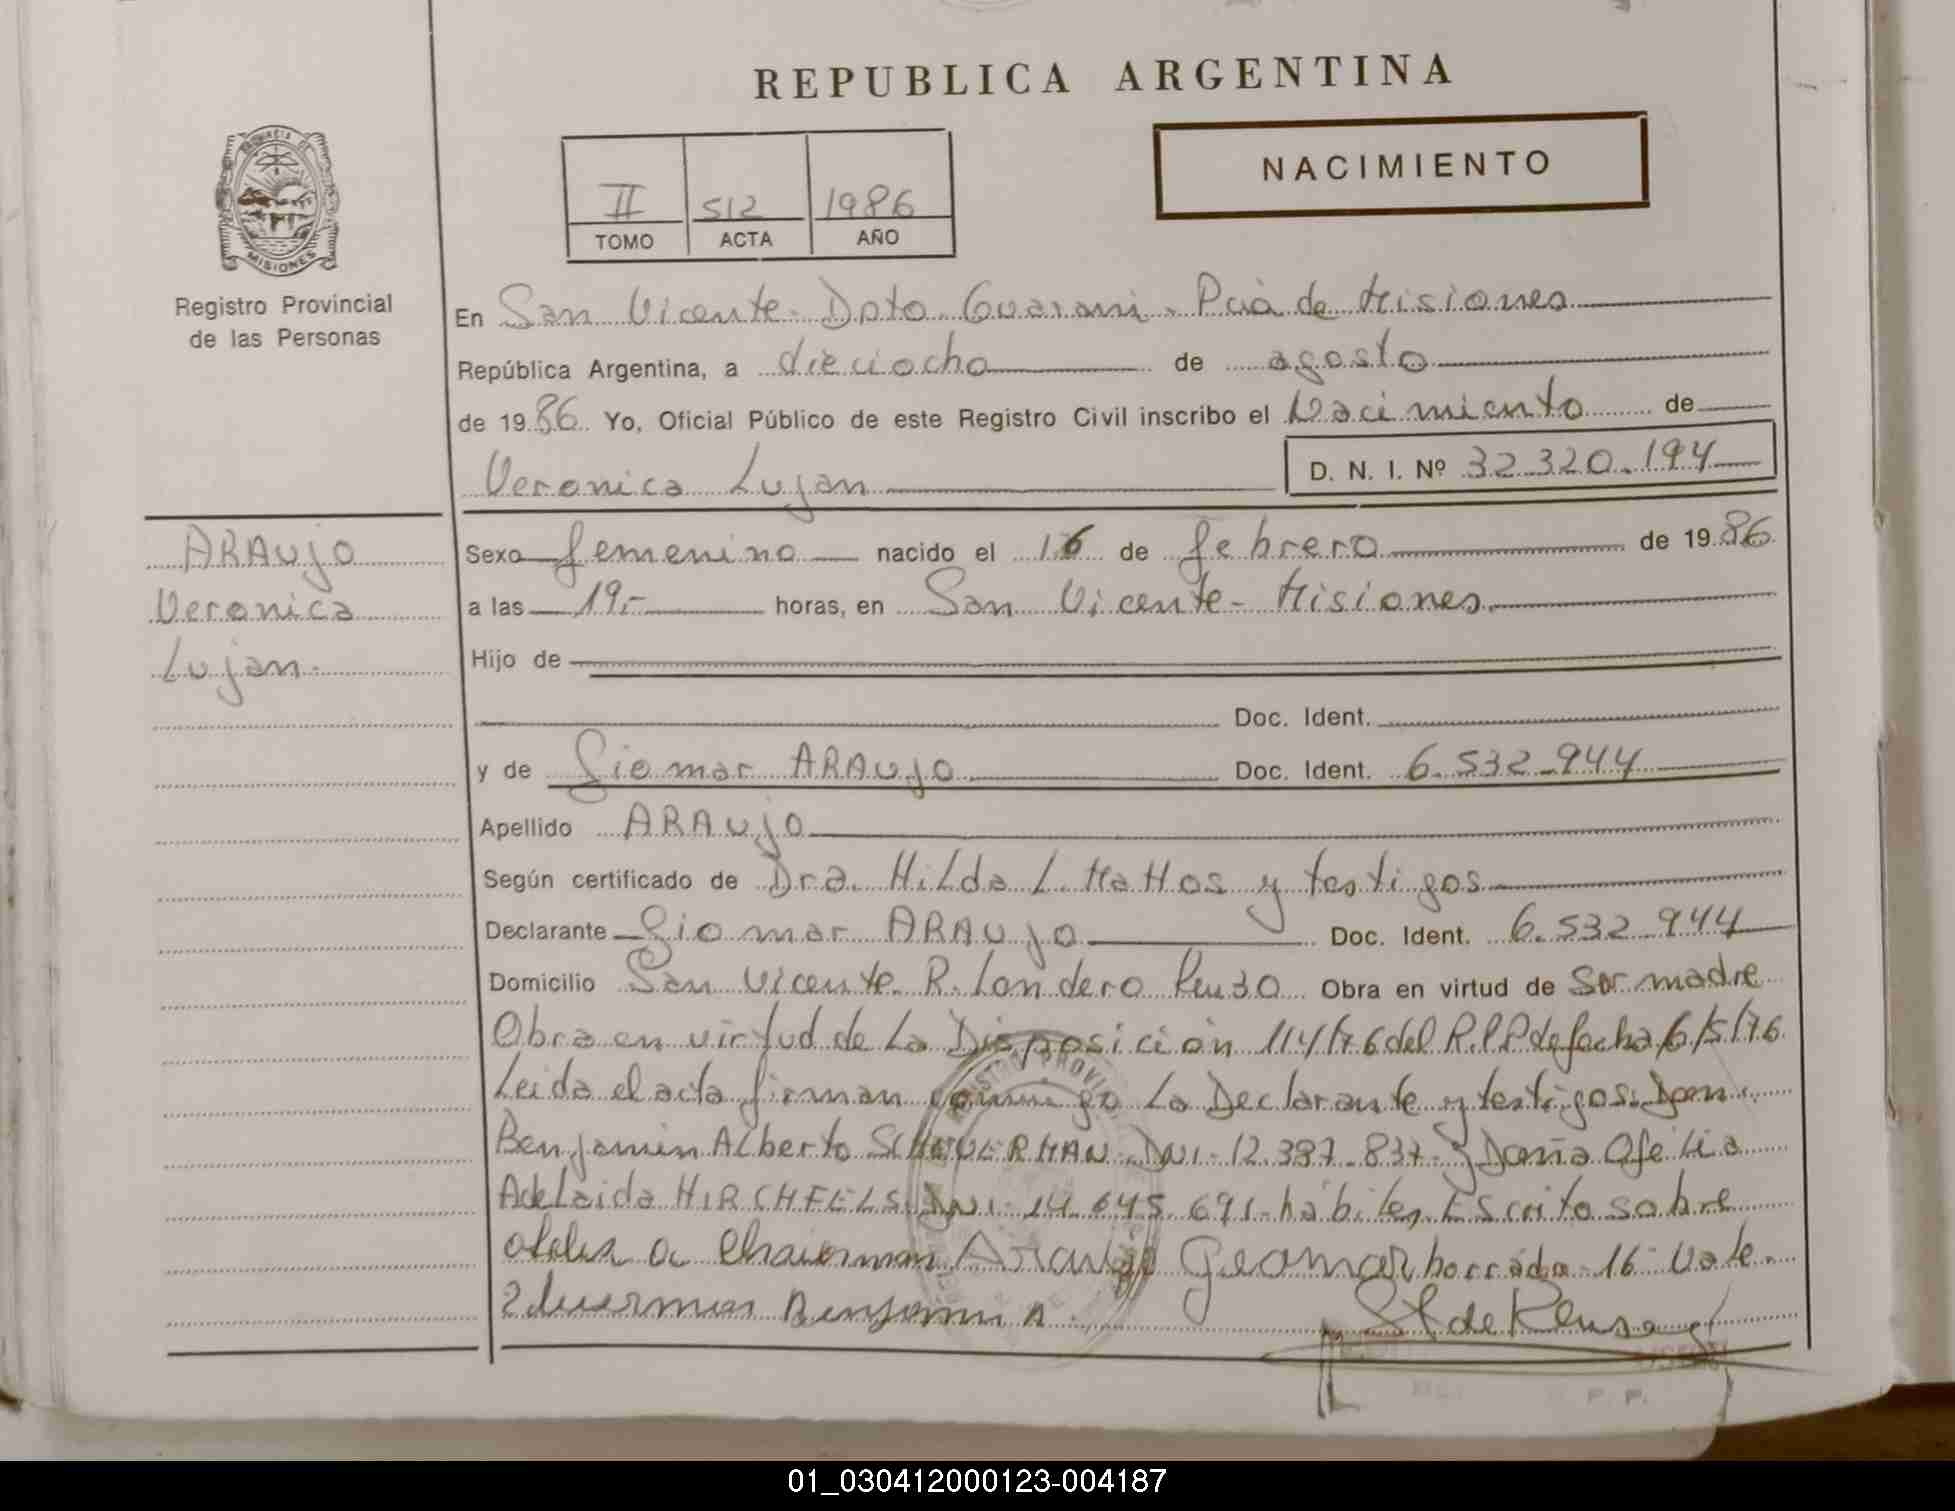 REPUBLICA ARGENTINA
PROVINCIA DE
MISIONES
Registro Provincial
de las Personas
II 512 1986
TOMO ACTA AÑO
NACIMIENTO
En San Vicente - Dpto. Guarani - Pcia de Misiones
República Argentina, a dieciocho de agosto
de 1986 Yo, Oficial Público de este Registro Civil inscribo el Nacimiento de
Veronica Lujan D. N. I. Nº 32.320.194
ARAUJO
Veronica
Lujan.
Sexo femenino nacido el 16 de febrero de 1986
a las 19,- horas, en San Vicente - Misiones.
Hijo de
Doc. Ident.
y de Giomar ARAUJO Doc. Ident. 6.532.944
Apellido ARAUJO
Según certificado de Dra. Hilda L. Mattos y testigos
Declarante Giomar ARAUJO Doc. Ident. 6.532.944
Domicilio San Vicente R. Londero Obra en virtud de Ser madre
Obra en virtud de La Disposición 114/76 del R.P.P de fecha 6/5/76
Leida el acta firman conmigo La Declarante y testigos: Don
Benjamin Alberto DNI - 12.397.837 - y Doña Ofelia
Adelaida HIRCHFELS DNI - 14.645.691 - hábiles, Escrito sobre
Araujo Geomar borrado 16 - Vale.
Benjamin A
P. P.
01_030412000123-004187